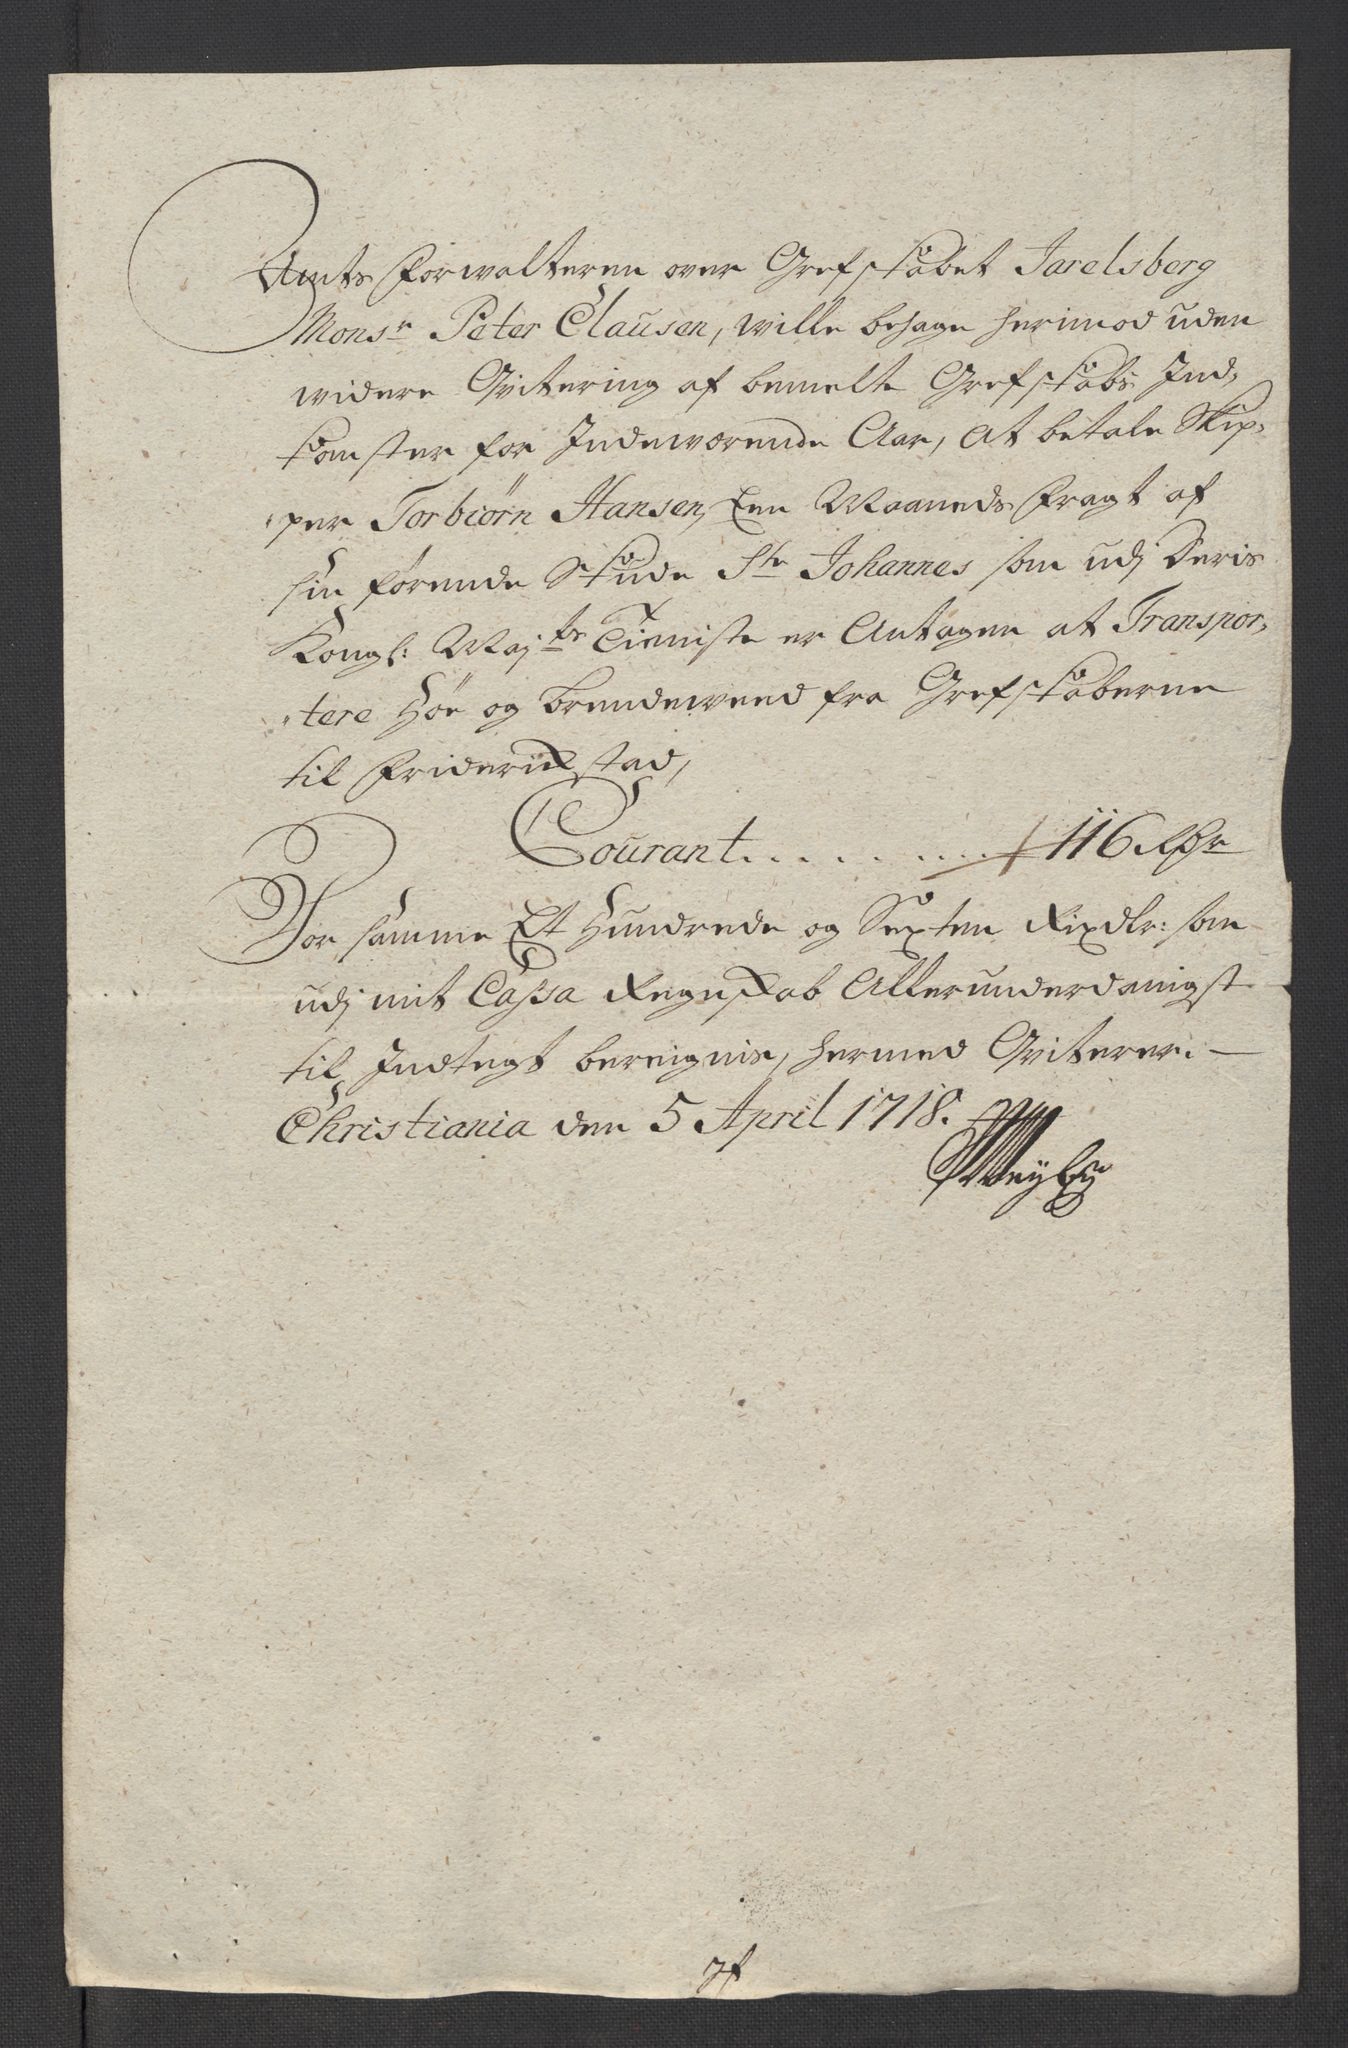 Amts Forwalteren over Grefskabet Jarelsberg
Monsr Peter Clausen, wille behage herimod uden
widere Qvitering af bemelte Grefskabs Ind,
komster for Indewærende Aar, at betale Skip,
per Torbiörn Hansen, Een Maaneds Fragt af
sin förende Skude Ste Johannes som udj Deris
Kongl: Majts Tieniste er Antagen at Transpor,
tere Höe og Brendeweed fra Grefskaberne
til Friderichstad,
Courant . . . . . . . . . 116 Rdr
For samme Et Hundrede og Sexten Rixdlr: som
udj mit Cassa Regnskab Allerunderdanigst
til Indtegt bereignis, hermed Qviterer. —
Christiania den 5 April 1718.